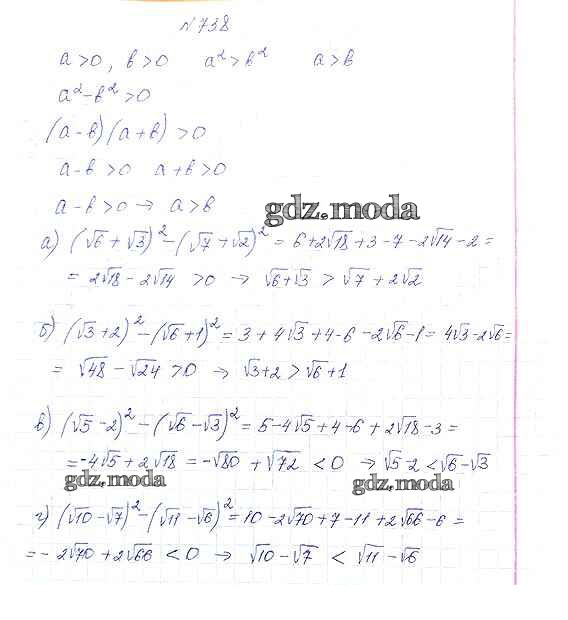 №738
a>0, b>0 a²>b² a>b
a²-b²>0
(a-b)(a+b)>0
a-b>0 a+b>0
a-b>0 → a>b
gdz.moda
а) (√6+√3)²-(√7+√2)²=6+2√18+3-7-2√14-2=
=2√18-2√14 >0 → √6+√3 > √7+2√2
б) (√3+2)²-(√6+1)²=3+4√3+4-6-2√6-1=4√3-2√6=
=√48-√24>0 → √3+2>√6+1
в) (√5-2)²-(√6-√3)²=5-4√5+4-6+2√18-3=
=-4√5+2√18=-√80+√72<0 → √5-2<√6-√3
gdz.moda gdz.moda
г) (√10-√7)²-(√11-√6)²=10-2√70+7-11+2√66-6=
=-2√70+2√66<0 → √10-√7 < √11-√6